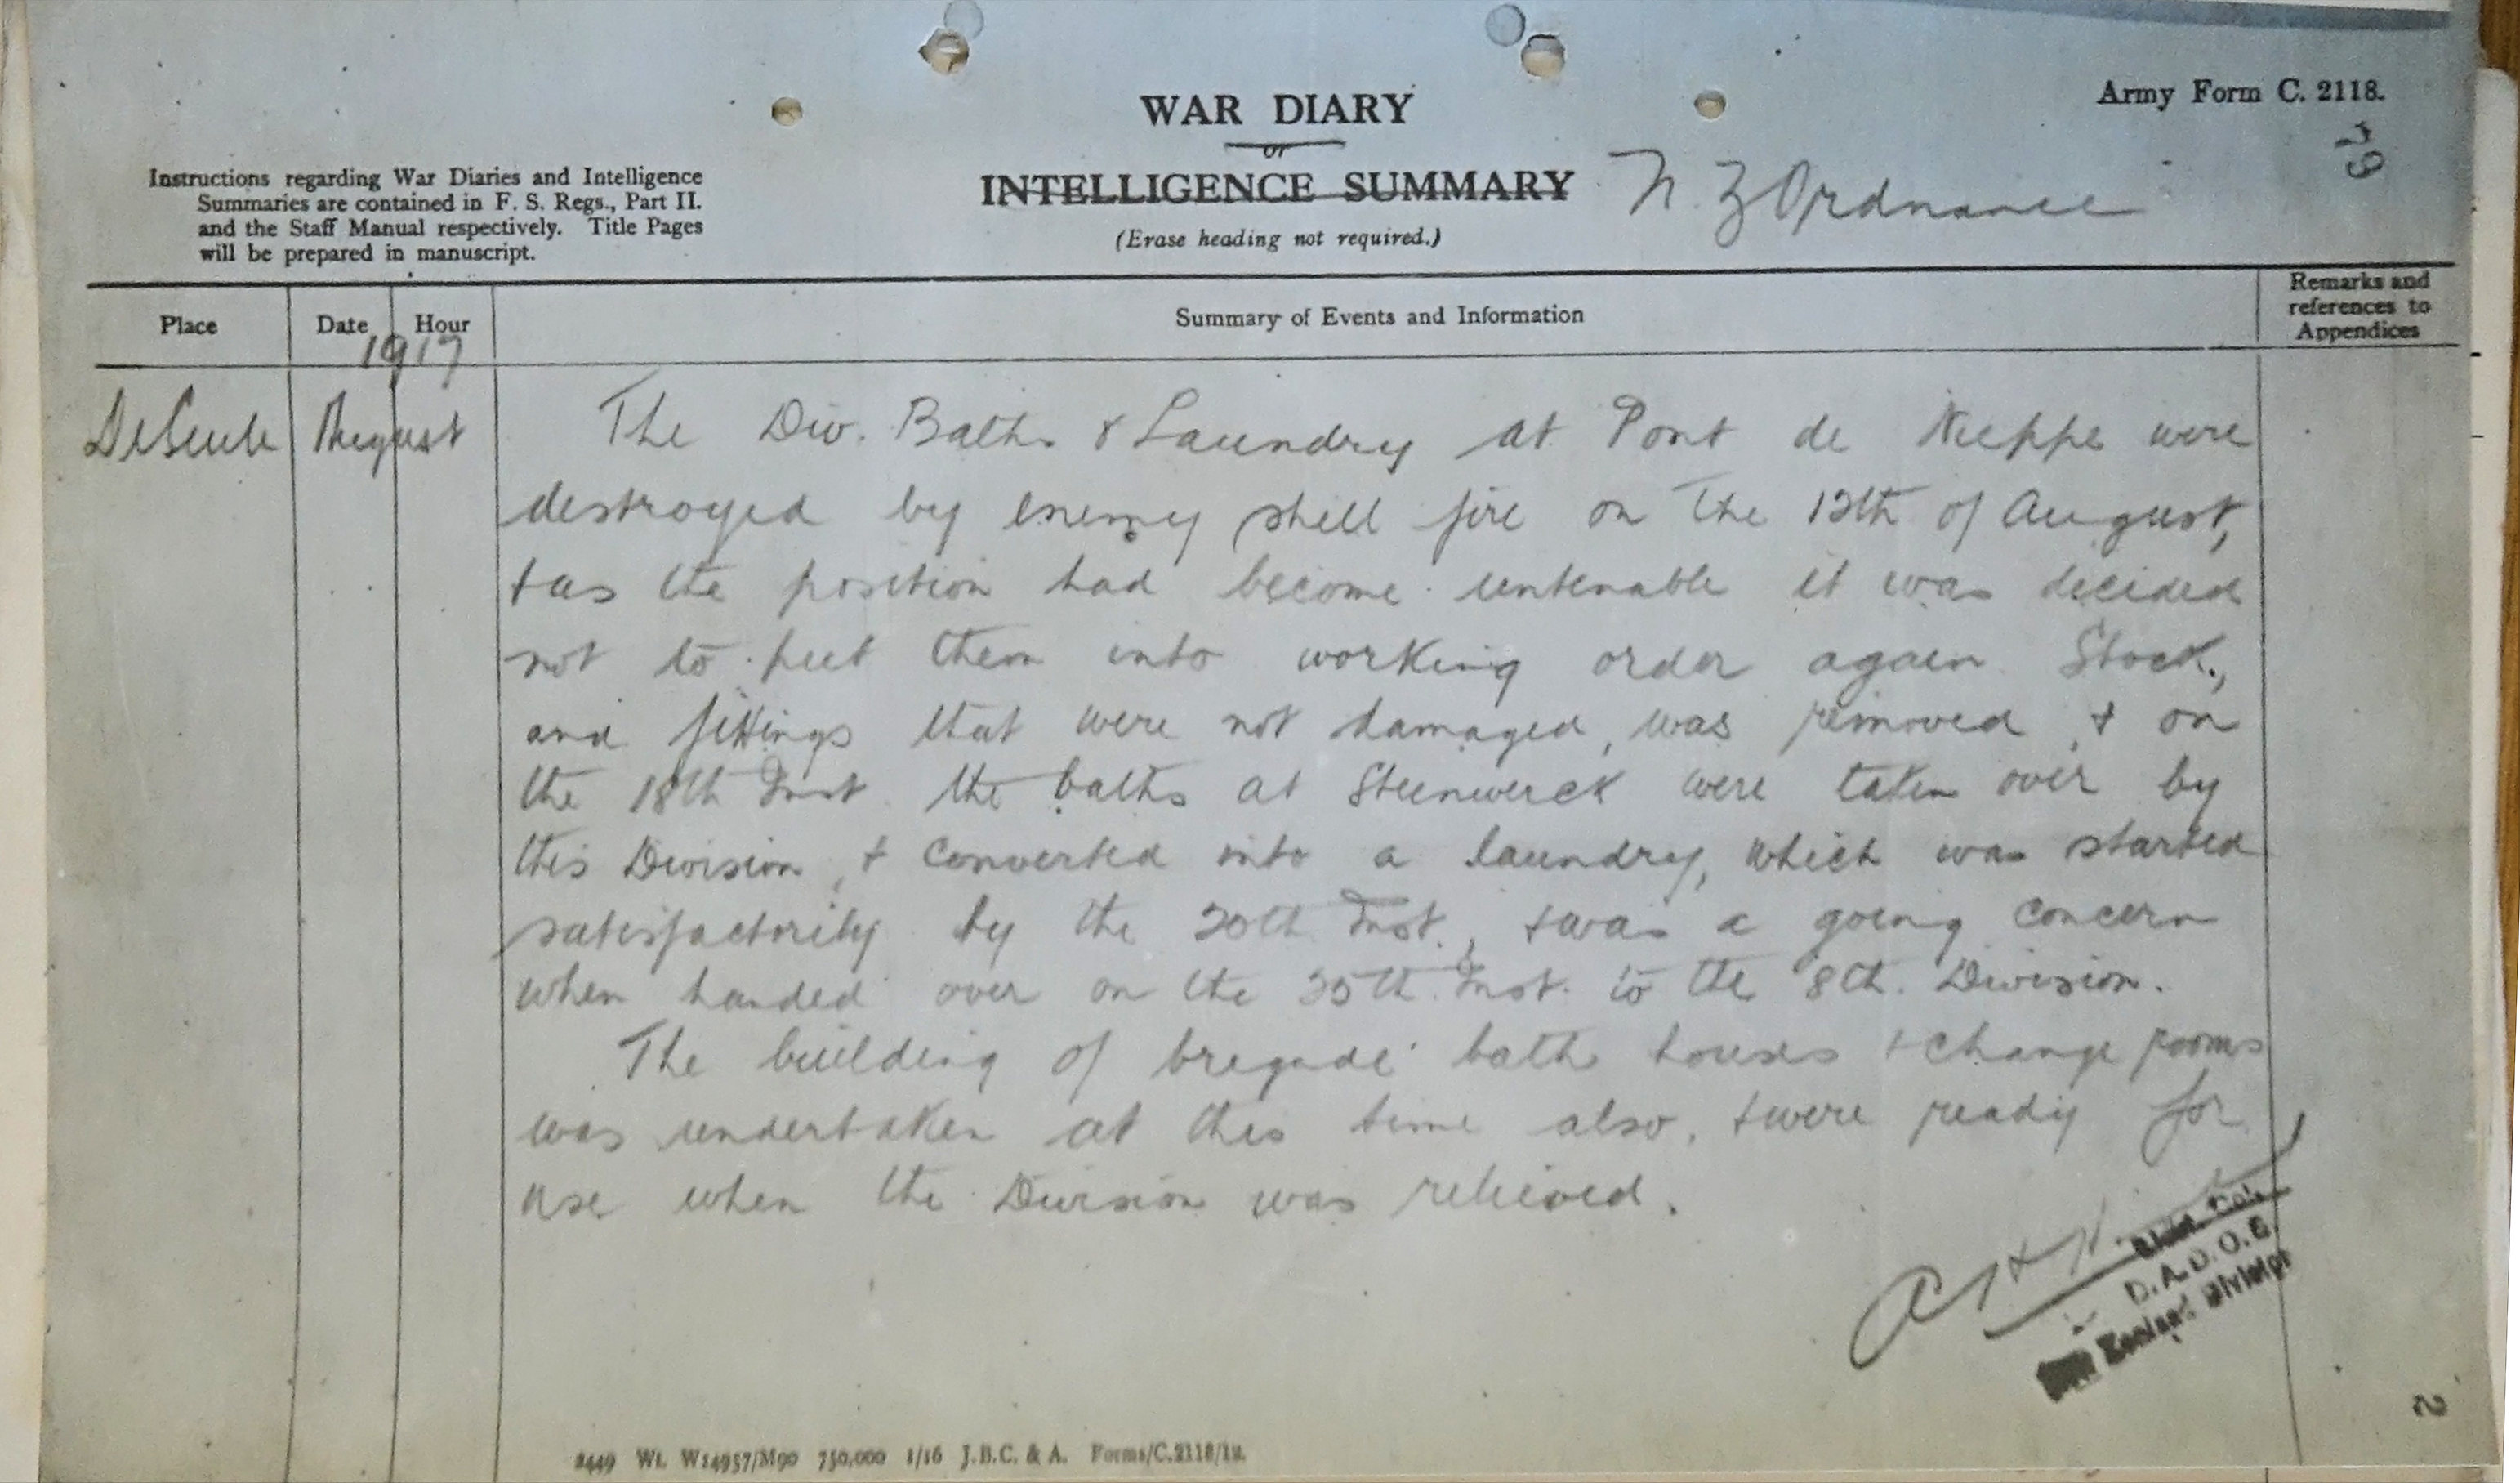 Army Form C. 2118.
WAR DIARY
or
INTELLIGENCE SUMMARY
N. Z Ordnance
(Erase heading not required.)
Instructions regarding War Diaries and Intelligence
Summaries are contained in F. S. Regs., Part II.
and the Staff Manual respectively. Title Pages
will be prepared in manuscript.
Place Date Hour Summary of Events and Information
Remarks and
references to
Appendices
1917
DeSeule August The Div. Baths & Laundry at Pont de Nieppe were
destroyed by enemy shell fire on the 12th of August,
& as the position had become untenable it was decided
not to put them into working order again. Stock,
and fittings that were not damaged, was removed, & on
the 18th Inst. the baths at Steenwerck were taken over by
this Division, & converted into a laundry, which was started
satisfactorily by the 20th Inst., & was a going concern
when handed over on the 25th. Inst. to the 8th. Division.
The building of brigade bath houses & change rooms
was undertaken at this time also, & were ready for
use when the Division was relieved.
D.A.D.O.S.
Zealand Division
2
2449 Wt. W14957/M90 750,000 1/16 J.B.C. & A. Forms/C.2118/12.